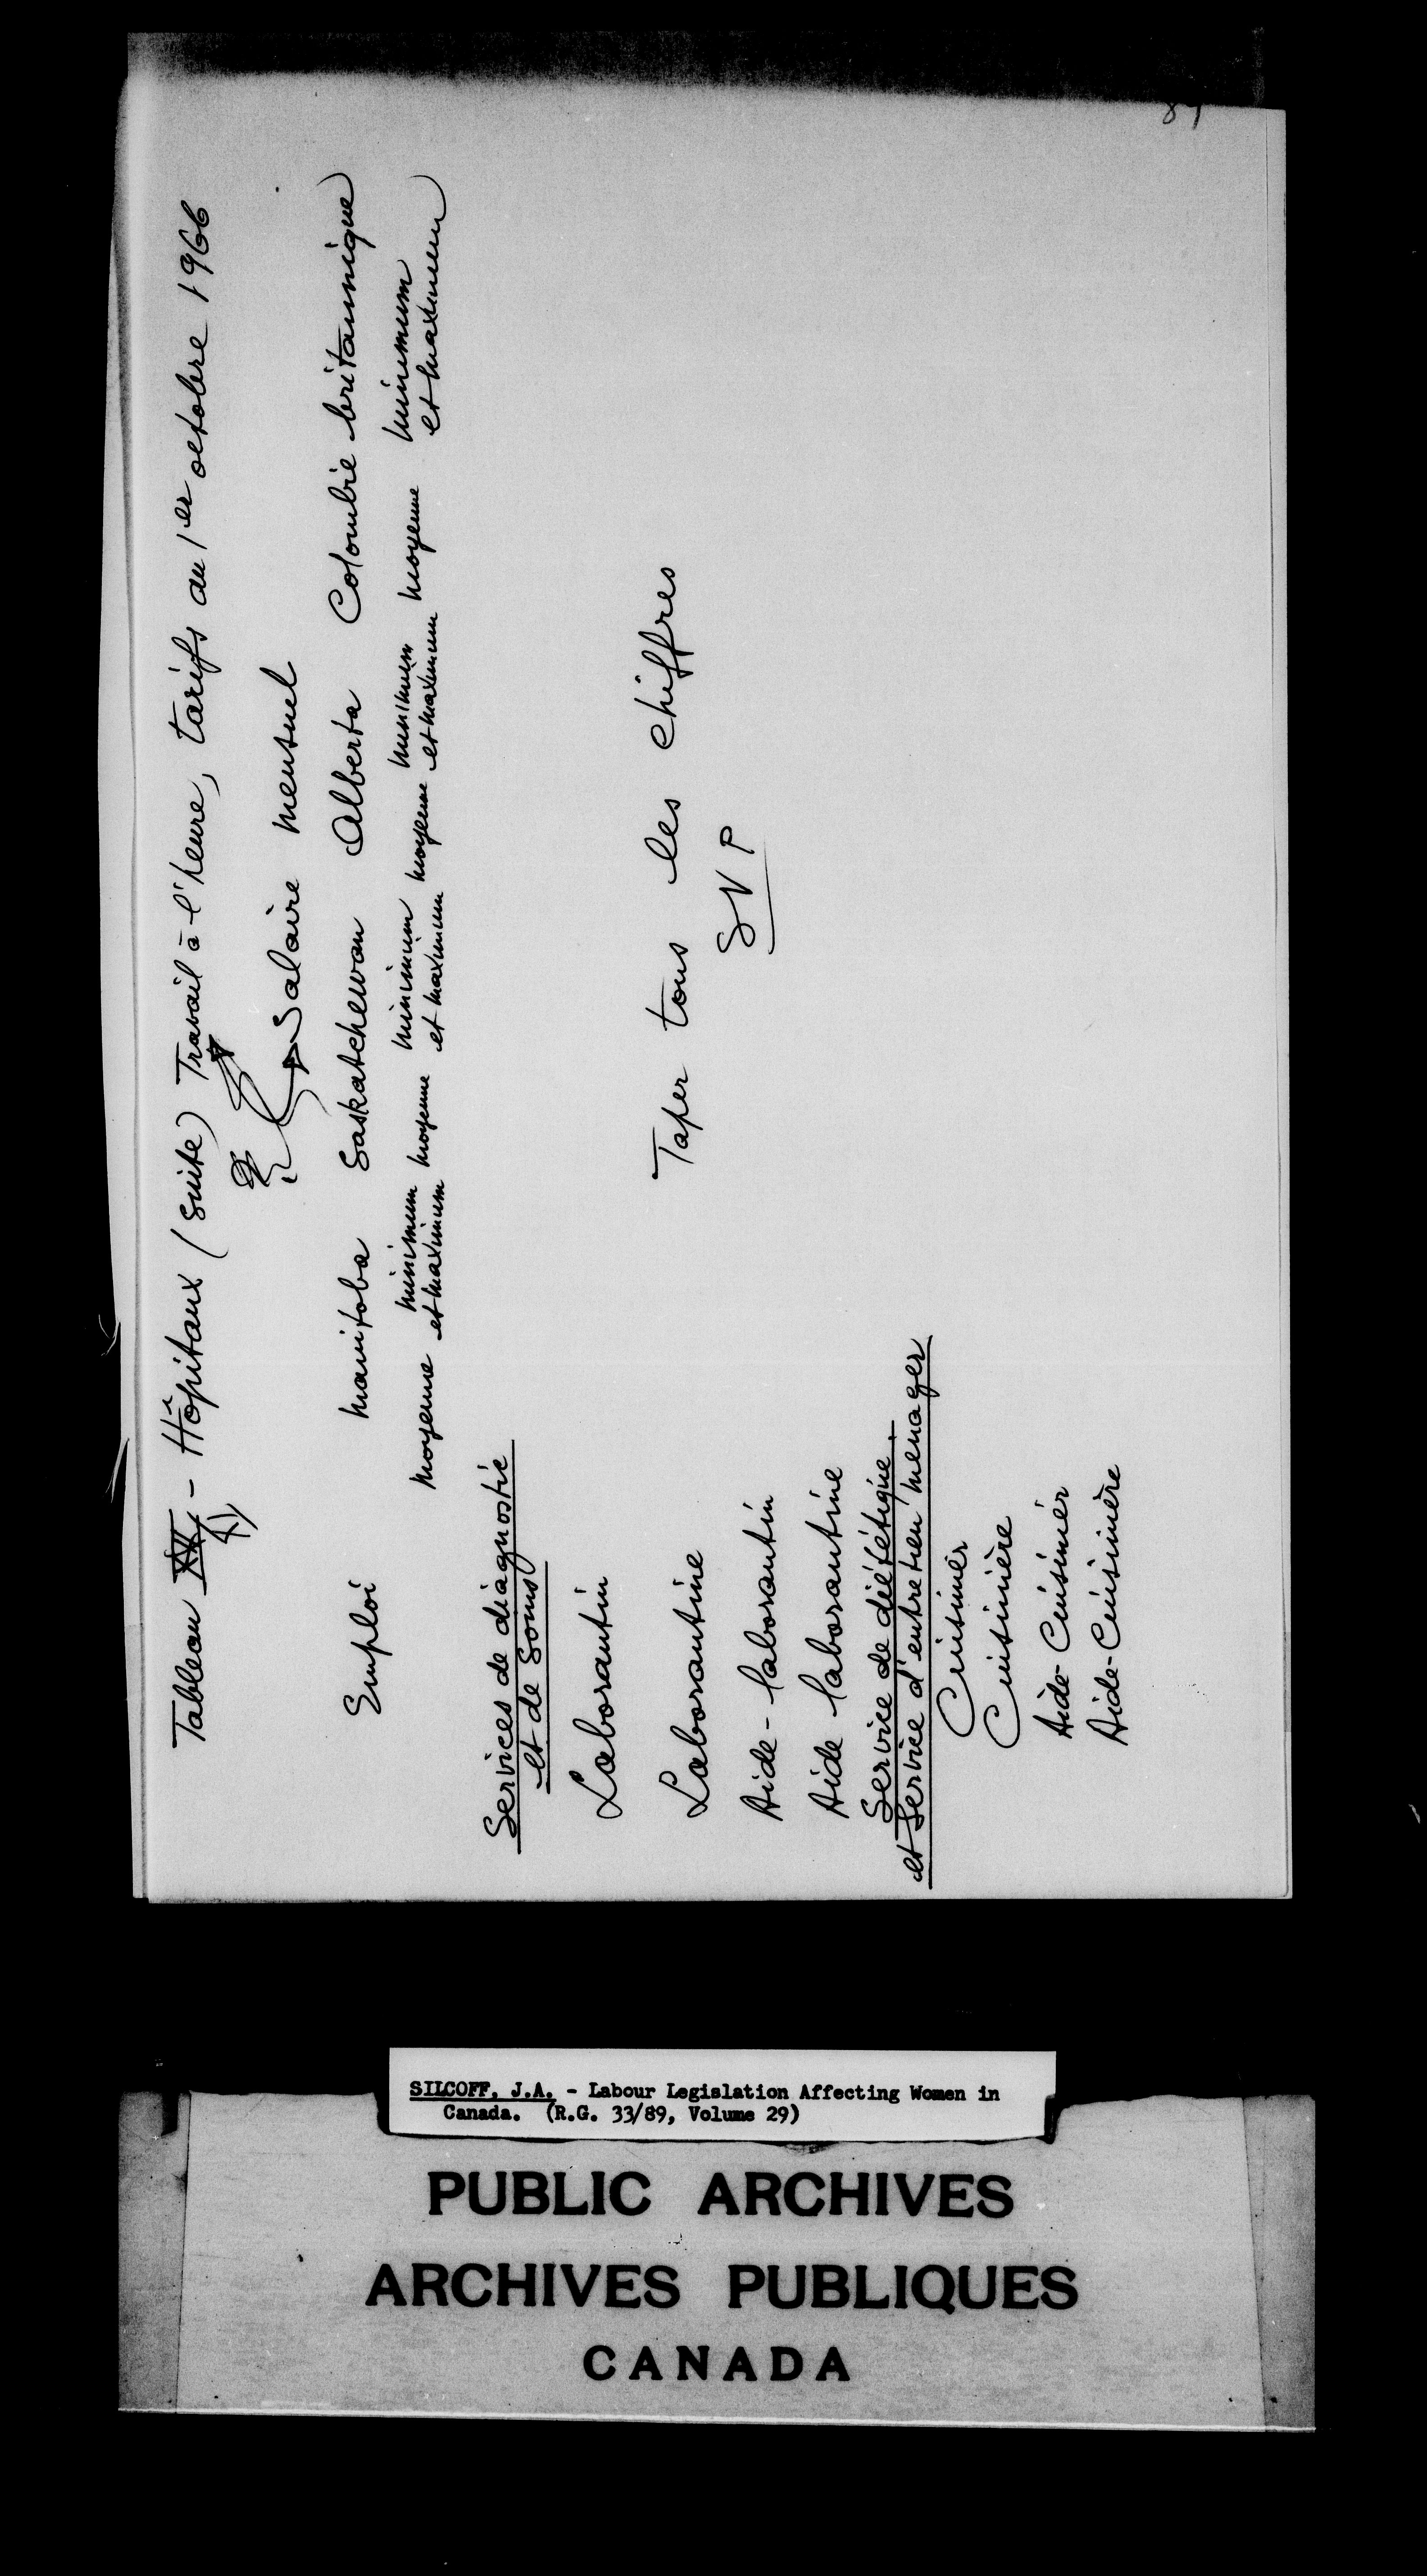 Tableau XV - Hôpitaux (suite) Travail à l'heure, tarifs au 1er octobre 1966
Salaire mensuel
Emploi Manitoba Saskatchewan Alberta Colombie britannique
moyenne minimum et maximum moyenne minimum et maximum moyenne minimum et maximum moyenne minimum et maximum
Services de diagnostic
et de soins
Laborantin
Taper tous les chiffres
Laborantine
SVP
Aide-laborantin
Aide laborantine
Service de diététique
et Service d'entretien ménager
Cuisinier
Cuisinière
Aide-Cuisinier
Aide-Cuisinière
SILCOFF, J.A. - Labour Legislation Affecting Women in
Canada. (R.G. 33/89, Volume 29)
PUBLIC ARCHIVES
ARCHIVES PUBLIQUES
CANADA